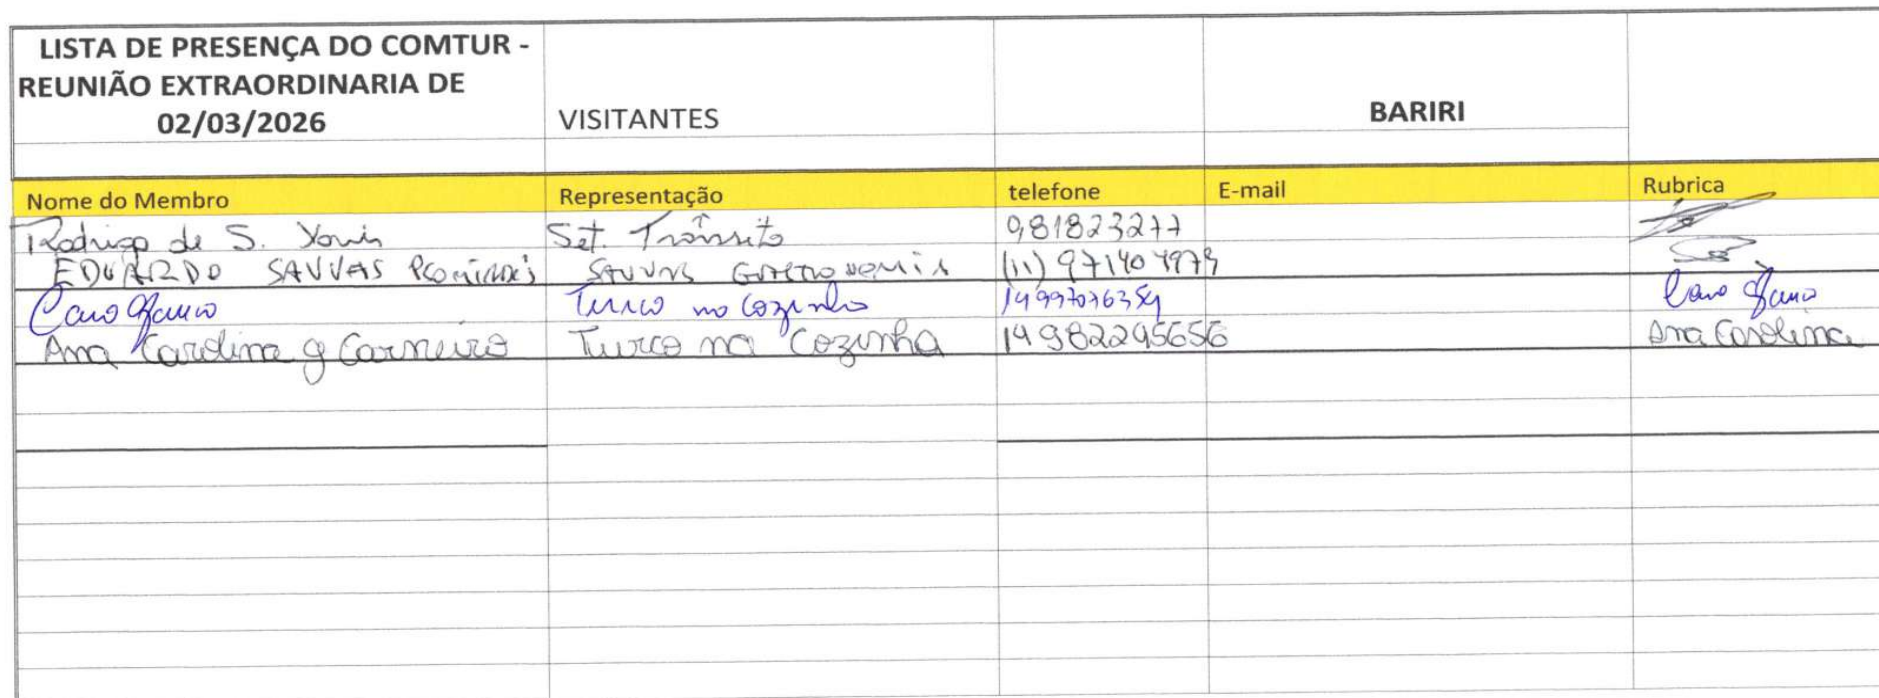 LISTA DE PRESENÇA DO COMTUR -
REUNIÃO EXTRAORDINARIA DE
02/03/2026 VISITANTES BARIRI
Nome do Membro Representação telefone E-mail Rubrica
Rodrigo de S. Set. Trânsito 981823277
EDUARDO SAVVAS SAVVAS (11)
Turco na Cozinha
Ana Carolina g Carneiro Turco na Cozinha 14 982295656 Ana Carolina